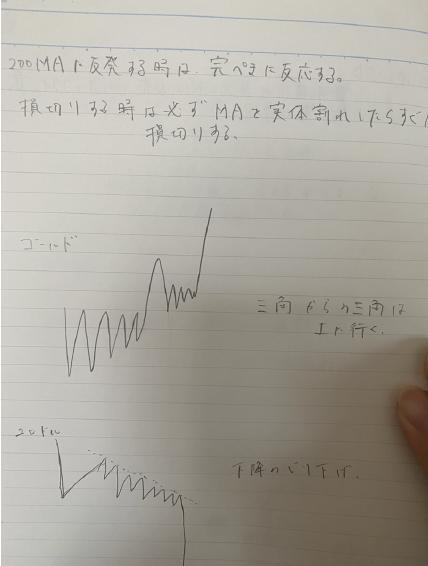 200MAに反発する時は、完ぺきに反応する。
損切りする時は必ずMAを実体割れしたらすぐに
損切りする。
ゴールド
三角からの三角は
上に行く。
下降の